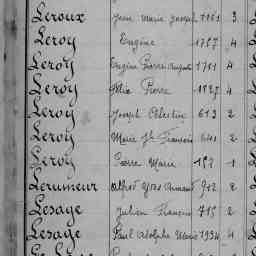 Leroux Jean Marie Joseph 1161 3
Leroy Eugène 1757 4
Leroy Eugène Pierre Auguste 1781 4
Leroy Félix Pierre 1827 4
Leroy Joseph Célestin 613 2
Leroy Marie Jh François 641 2
Leroy Pierre Marie 182 1
Lerumeur Alfred Yves Armand 912 2
Lesage Julien François 715 2
Lesage Paul Adolphe Marie 1934 4